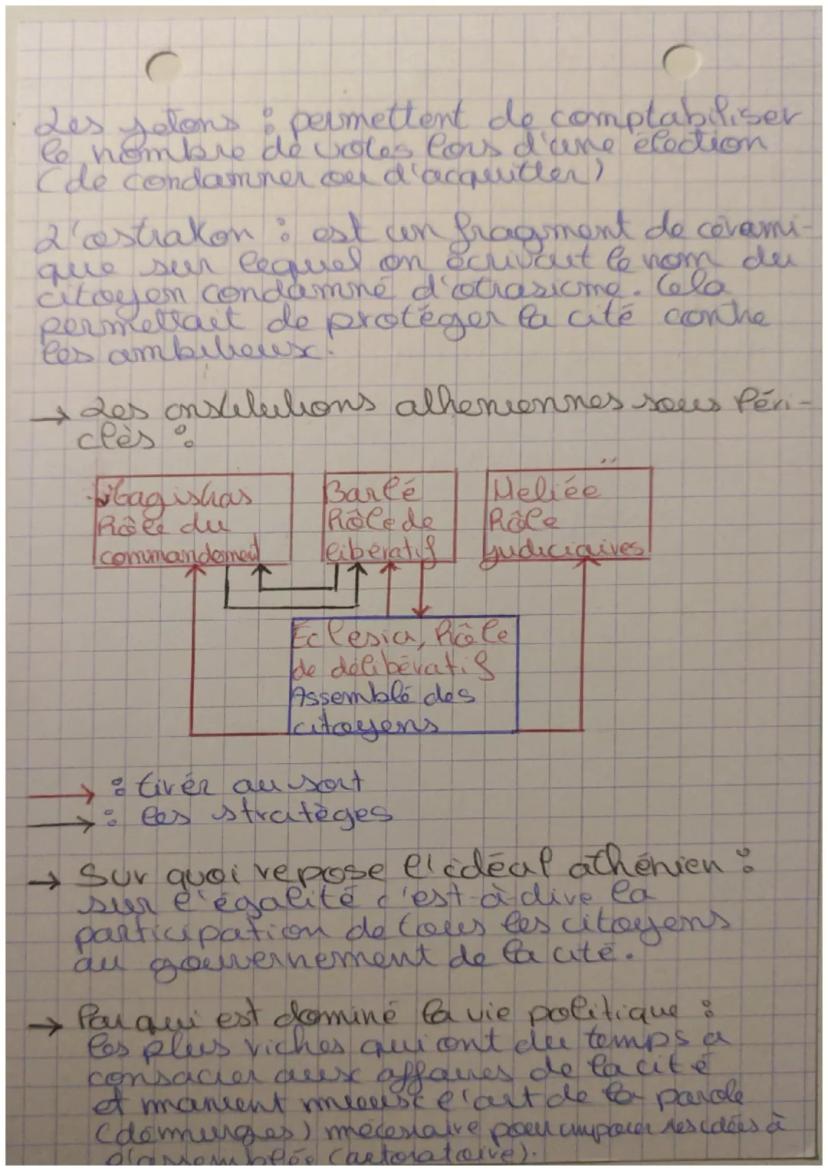 Les jetons : permettent de comptabiliser
le nombre de votes lors d'une élection
(de condamner ou d'acquitter)
L'ostrakon : est un fragment de cérami-
que sur lequel on écrivait le nom du
citoyen condamné d'otrasicme. Cela
permettait de protéger la cité contre
les ambitieux.
→ Les institutions atheniennes sous Péri-
clès :
Magistras
Rôle du
commandement
Barlé
Rôle de
libératif
Heliée
Rôle
judiciaires
Eclesia, Rôle
de délibératif
Assemblé des
citoyens
→ : tirér au sort
→ : les stratèges
→ Sur quoi repose l'idéal athénien :
sur l'égalité c'est-à-dire la
participation de tous les citoyens
au gouvernement de la cité.
→ Par qui est dominé la vie politique :
les plus riches qui ont du temps a
consacrer aux affaires de la cité
et manient mieux l'art de la parole
(démurges) nécessaire pour imposer ses idées à
l'assemblée